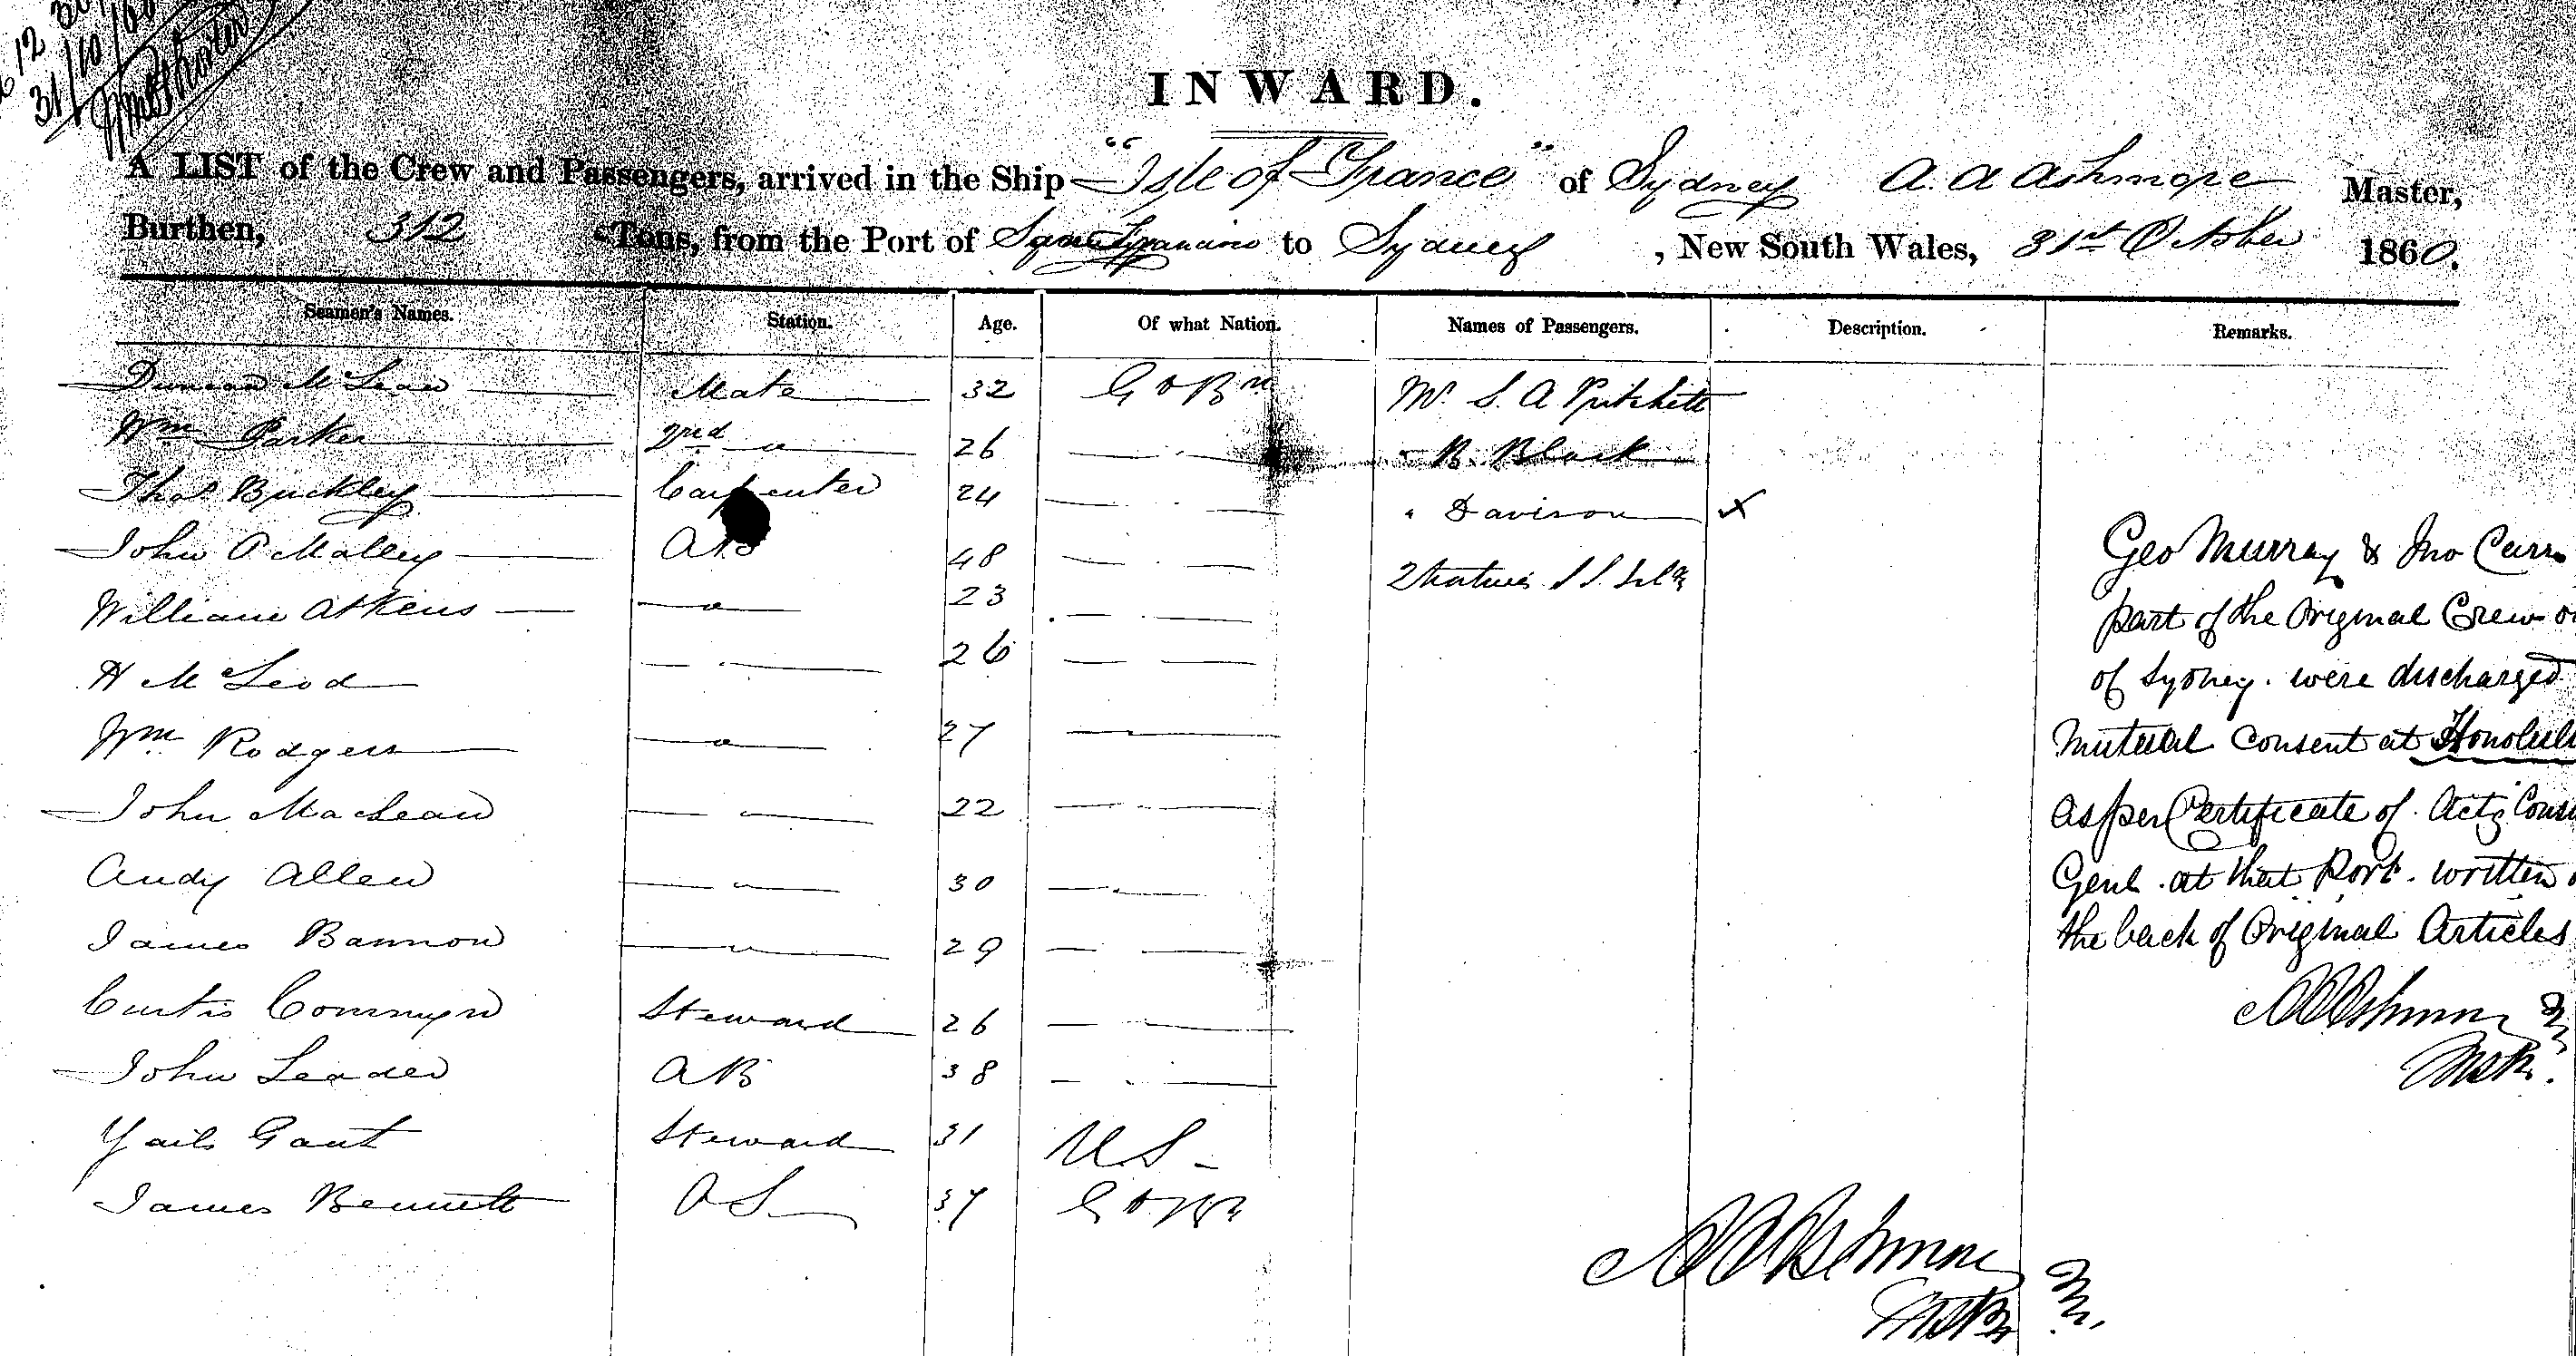 12
31/10/60
INWARD.
A LIST of the Crew and Passengers, arrived in the Ship "Isle of France" of Sydney A. A Ashmore Master,
Burthen, 312 Tons, from the Port of San Francisco to Sydney, New South Wales, 31st October 1860.
Seamen's Names. Station. Age. Of what Nation. Names of Passengers. Description. Remarks.
Duncan McLean Mate 32 Gt Bn Mr. S. A Pritchett
Wm Parker 2nd " 26 — " — " B. Black
Thos Buckley Carpenter 24 — " — " Davison x
John O Malley AB 48 — " —
William Atkens — " — 23 — " —
H McLeod — " — 26 — " —
Wm Rodgers — " — 27 — " —
John MacLean — " — 22 — " —
Andy Allen — " — 30 — " —
James Bannon — " — 29 — " —
Curtis Steward 26 — " —
John Leader AB 38 — " —
Gant Steward 31 U.S-
James Bennett OS 37 Gt Bn
Geo Murray & Jno
part of the Original Crew
of Sydney. were discharged
Mutual Consent at
as per Certificate of Actg
Genl. at that Port. written
the back of Original Articles
A A Ashmore
Mstr.
A A Ashmore
Mstr